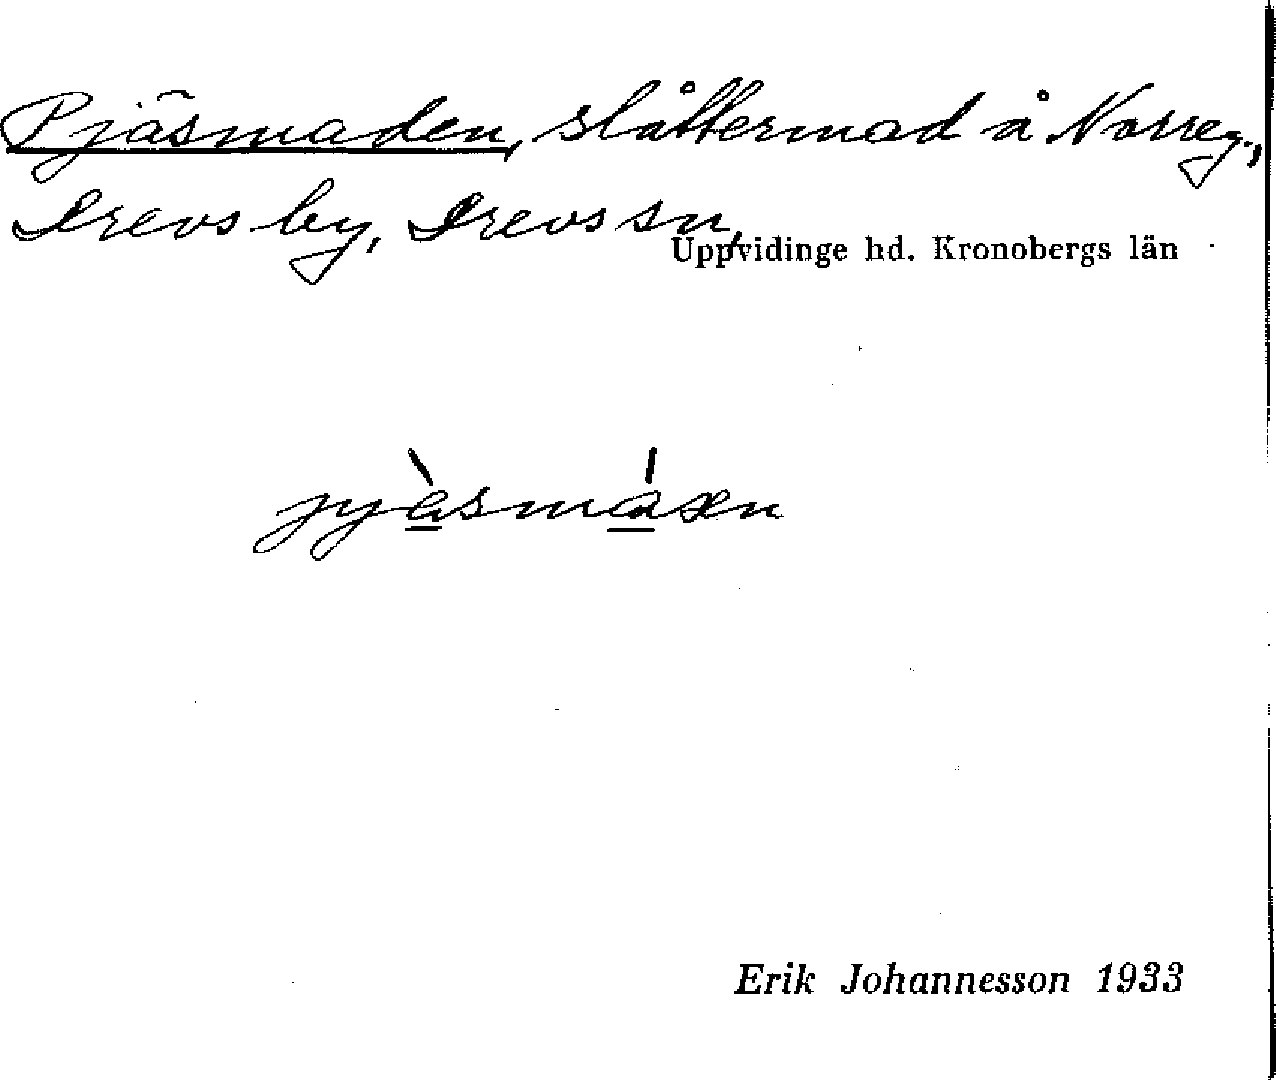 Pjäsmaden, slåttermad å Norreg.,
Drevs by, Drevs sn,
Uppvidinge hd. Kronobergs län
pjàsmáxn
Erik Johannesson 1933